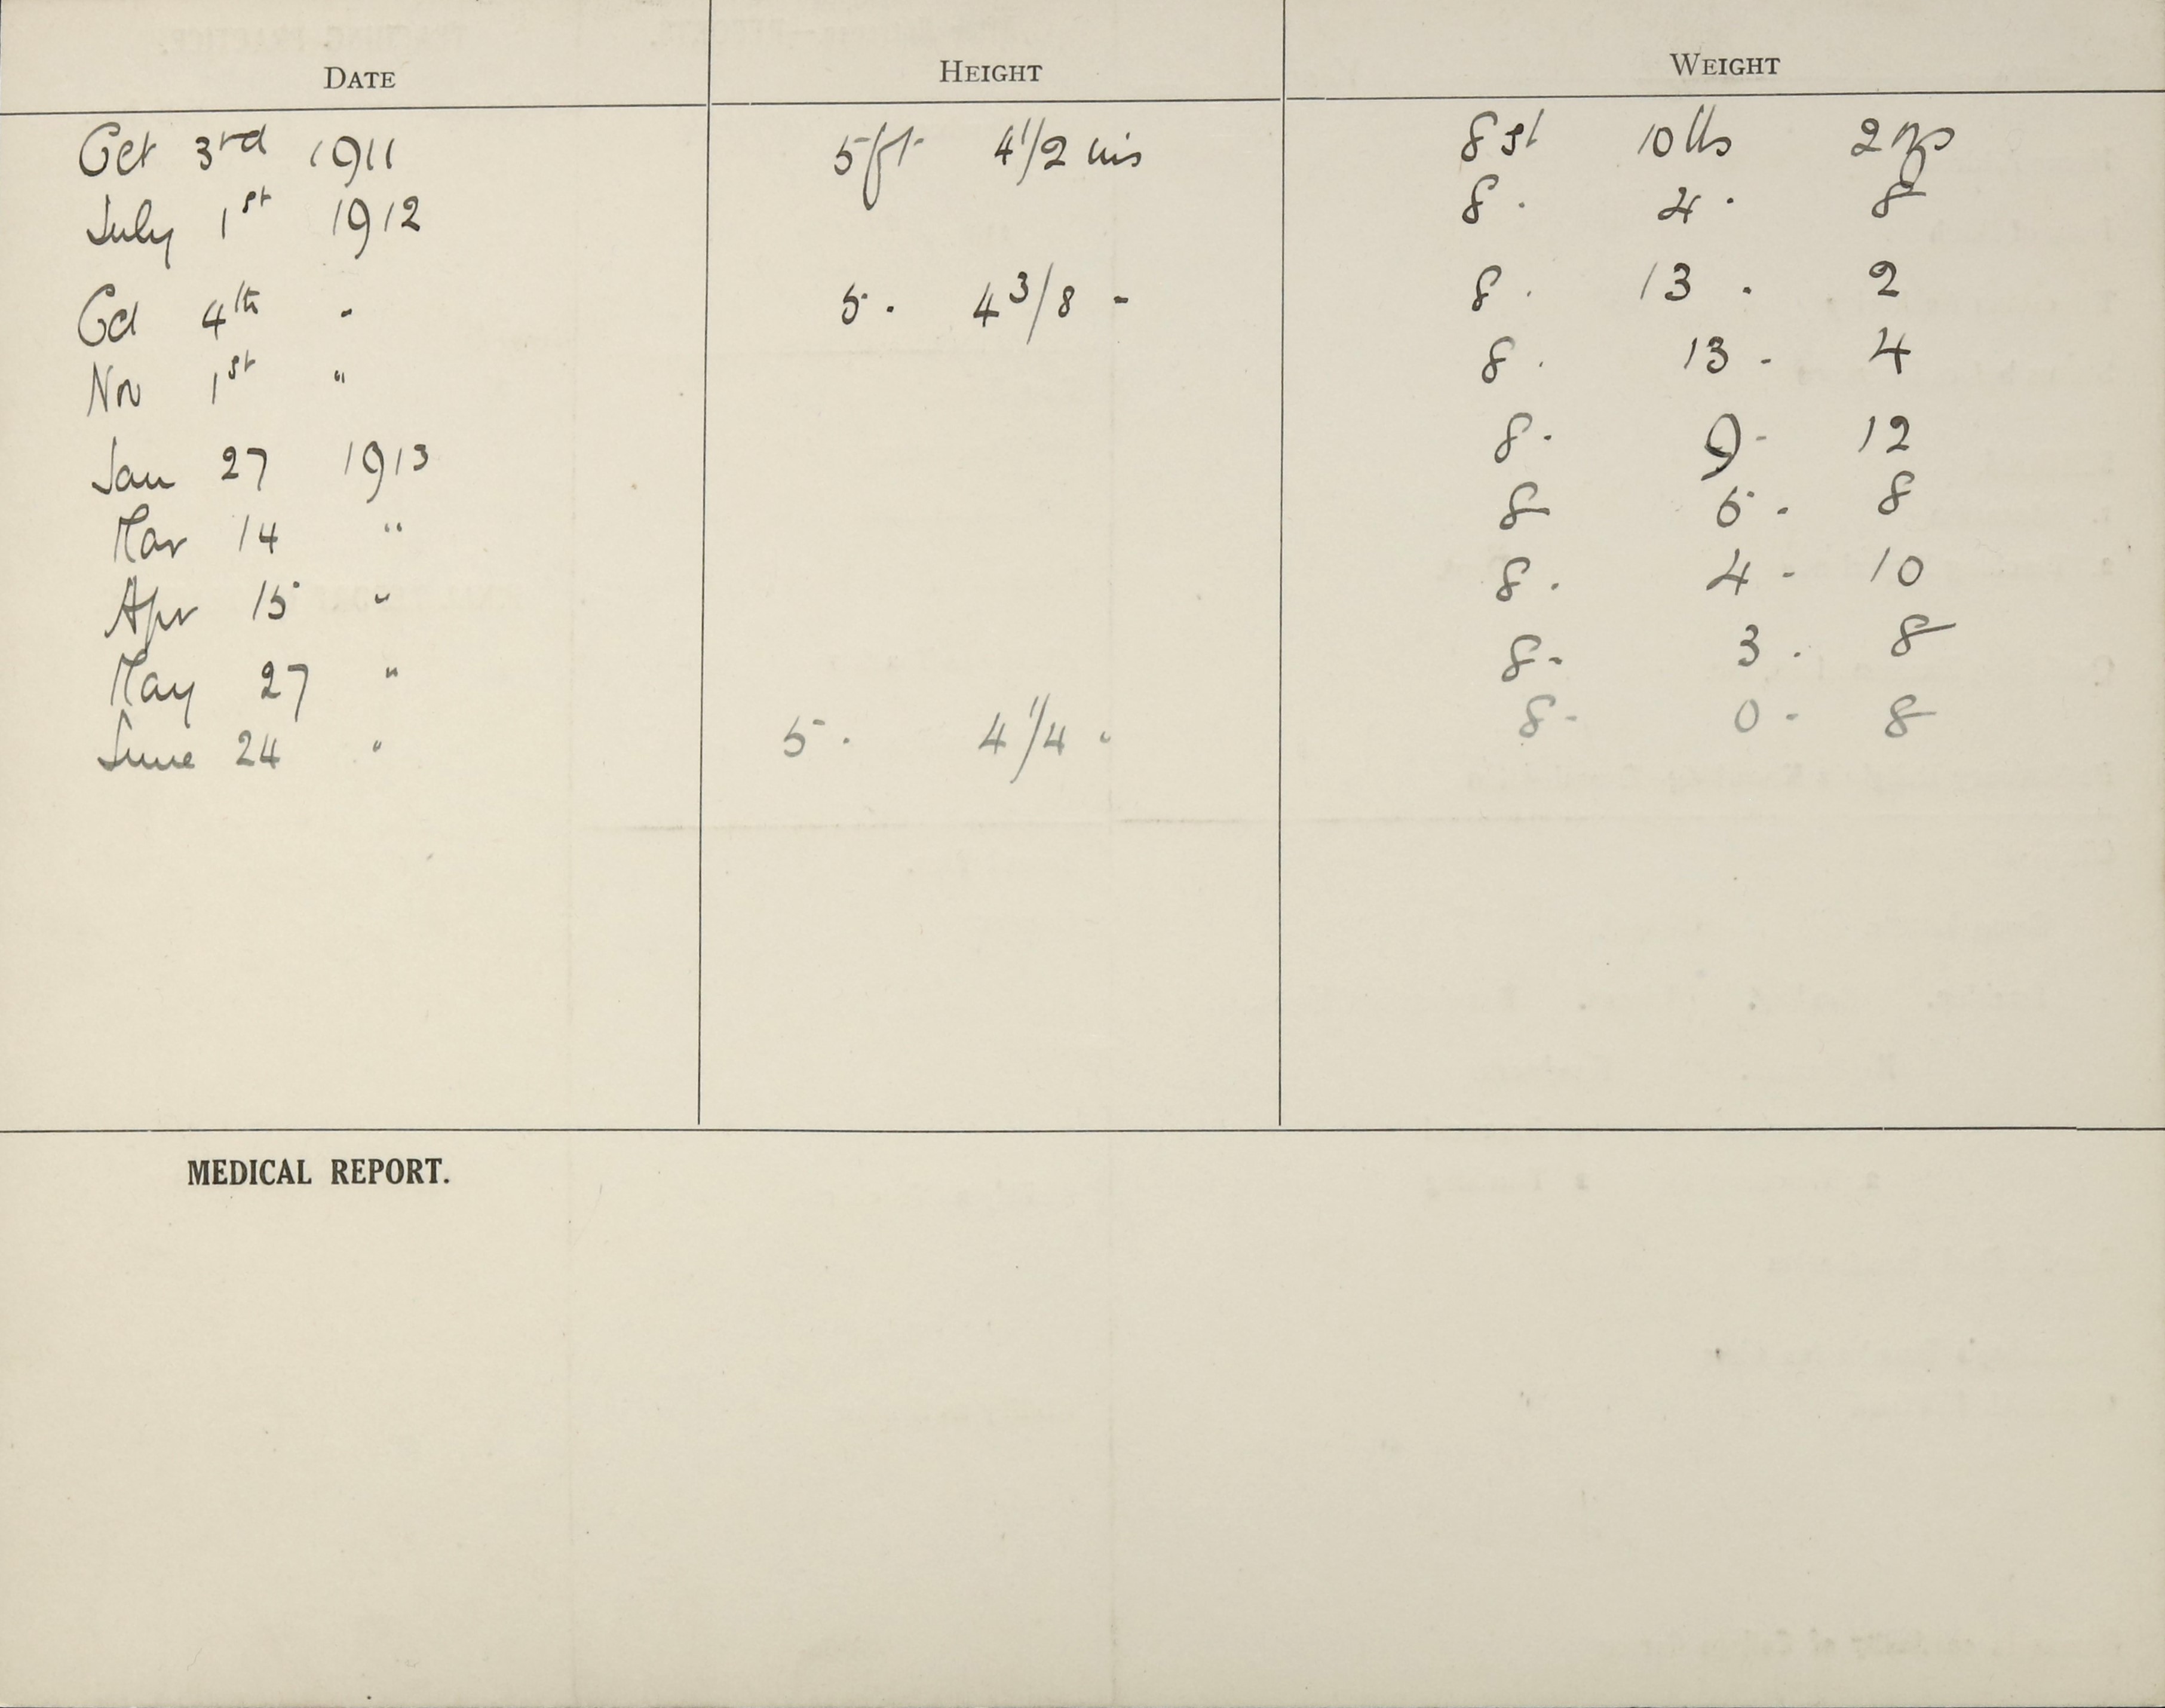 DATE HEIGHT WEIGHT
Oct 3rd 1911 5ft 4 1/2 ins 8 st 10 lbs 2 ozs
July 1st 1912 8 . 4 . 8
Oct 4th " 5 . 4 3/8 " 8 . 13 . 2
Nov 1st " 8 . 13 - 4
Jan 27 1913 8 - 9 - 12
Mar 14 " 8 5 - 8
Apr 15 " 8 . 4 - 10
May 27 " 8 - 3 . 8
June 24 " 5 . 4 1/4 " 8 - 0 - 8
MEDICAL REPORT.